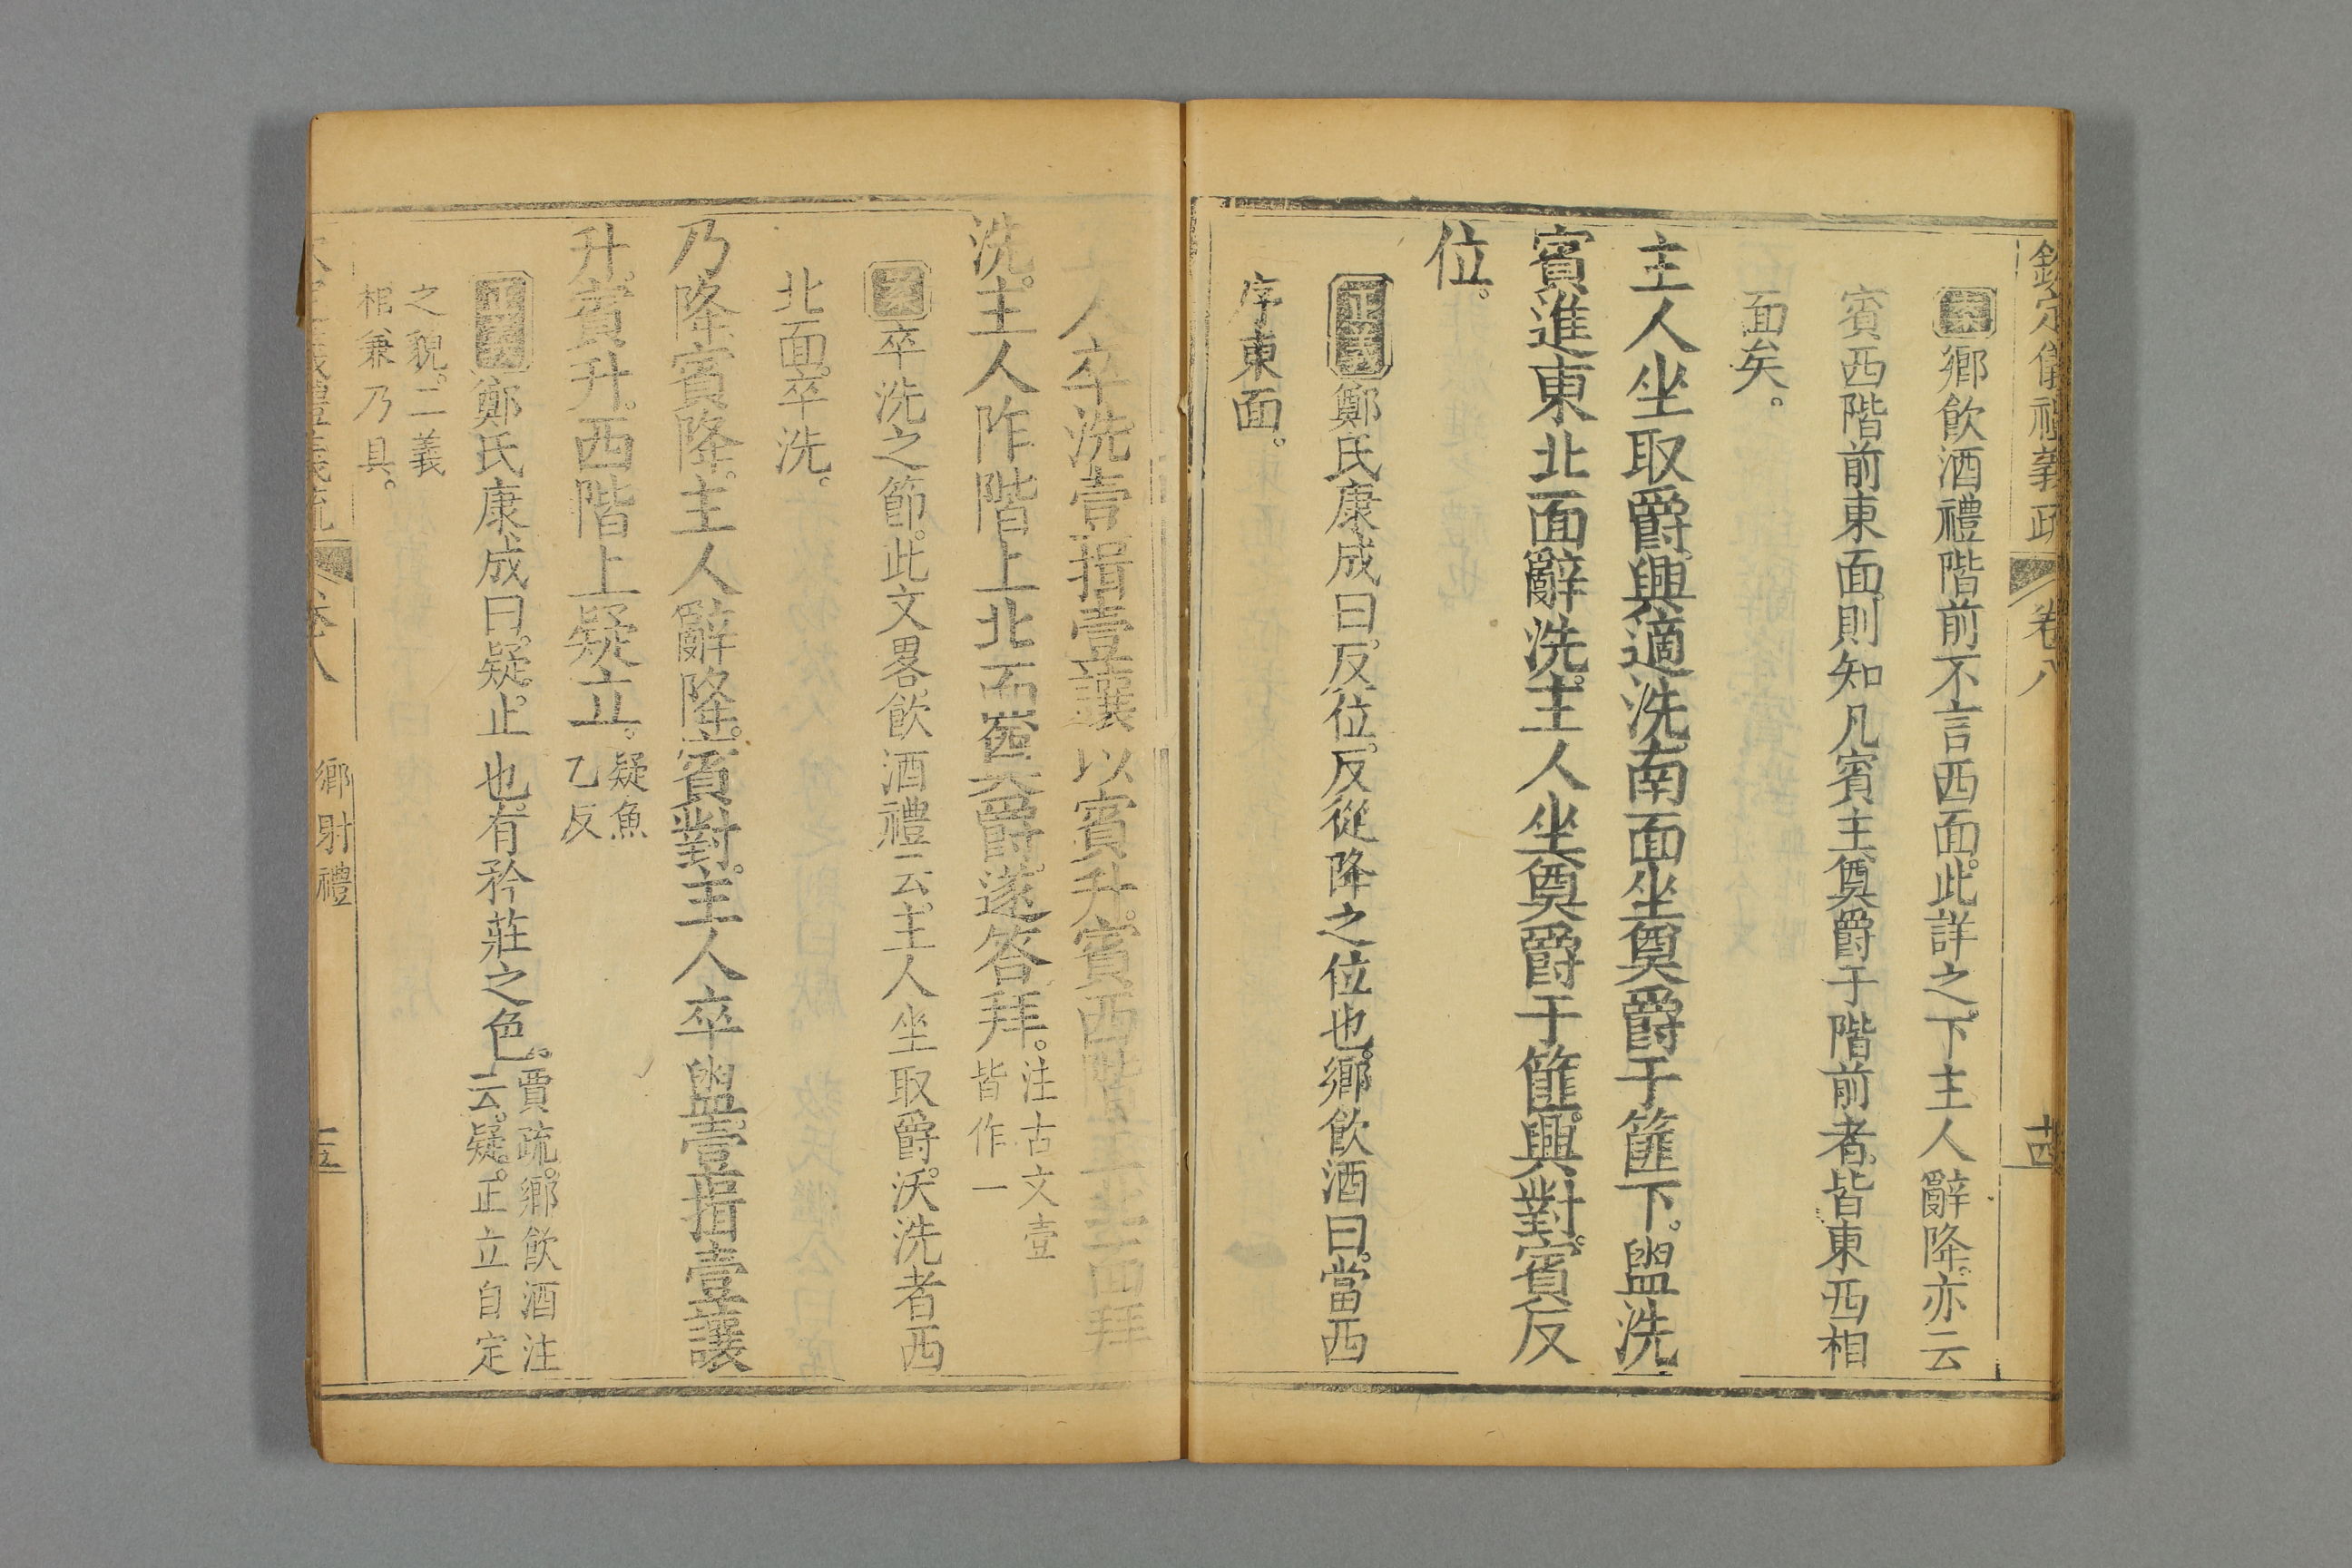 欽定儀禮義疏 卷八 十四
案鄉飲酒禮階前不言西面。此詳之。下主人辭降。亦云
賓西階前東面。則知凡賓主奠爵于階前者。皆東西相
面矣。
主人坐取爵。興適洗。南面坐奠爵于篚下。盥洗。
賓進東北面辭洗。主人坐奠爵于篚。興對。賓反
位。
正義鄭氏康成曰。反位。反從降之位也。鄉飲酒曰。當西
序東面。
主人卒洗。壹揖壹讓以賓升。賓西階上北面拜
洗。主人阼階上北面奠爵。遂答拜。
注古文壹
皆作一
案卒洗之節。此文畧。飲酒禮云。主人坐取爵。沃洗者西
北面。卒洗。
乃降。賓降。主人辭降。賓對。主人卒盥。壹揖壹讓
升。賓升。西階上疑立。
疑魚
乙反
正義鄭氏康成曰。疑。止也。有矜莊之色。
賈疏。鄉飲酒注
云。疑。正立自定
之貌。二義
相兼乃具。
欽定儀禮義疏 卷八 鄉射禮 十五